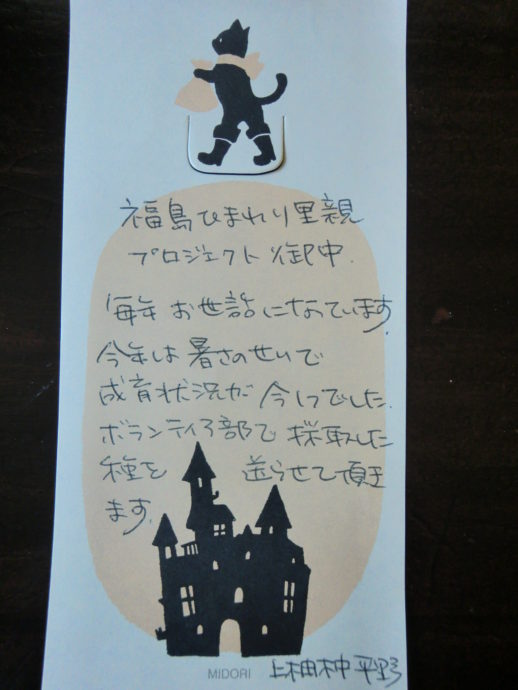 福島ひまわり里親
プロジェクト御中.
毎年 お世話になっています.
今年は 暑さのせいで
成育状況が 今1つでした.
ボランティア部で 採取した
種を 送らせて頂き
ます.
MIDORI 平野